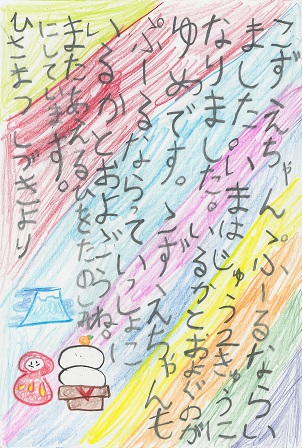 こずえちゃん、ぷーるならい
ました。いまはじゅう2きゅうに
なりました。いるかとおよぐのが
ゆめです。こずえちゃんも
ぷーるならっていっしょに
いるかとおよごうね。
またあえるひをたのしみ
にしています。
ひさまつしづさより